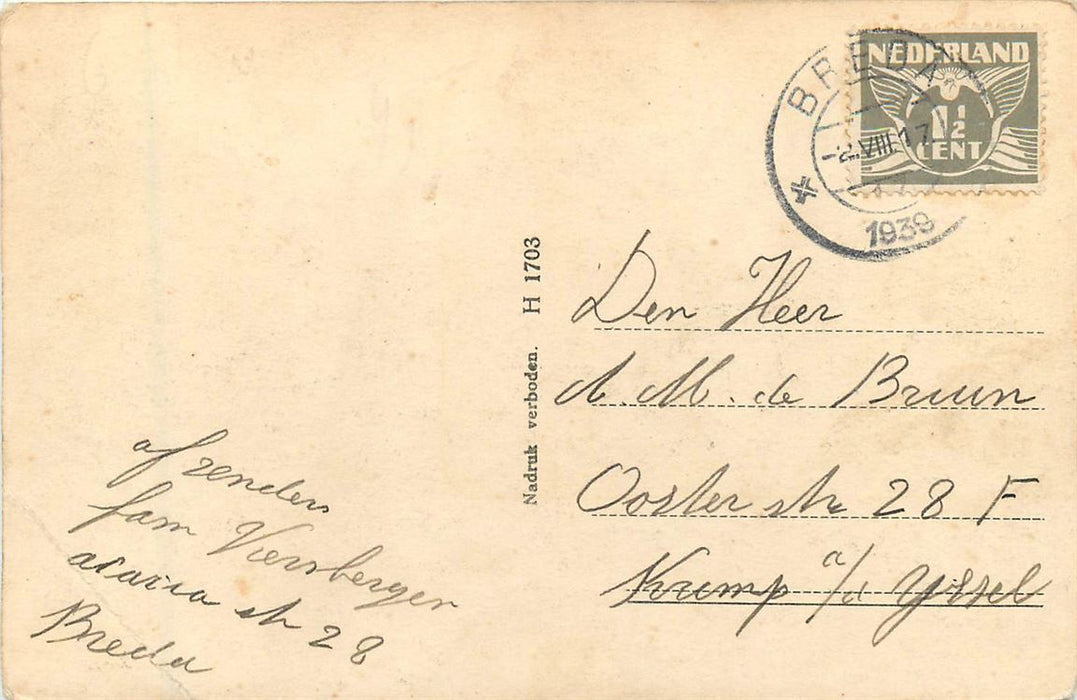 NEDERLAND
1½
CENT
BREDA
2.VIII.17
1939
Den Heer
A. M. de Bruin
Ooster str 28 F
Krimp a/d Yssel
Nadruk verboden. H 1703
afzenders
fam
acacia str 28
Breda